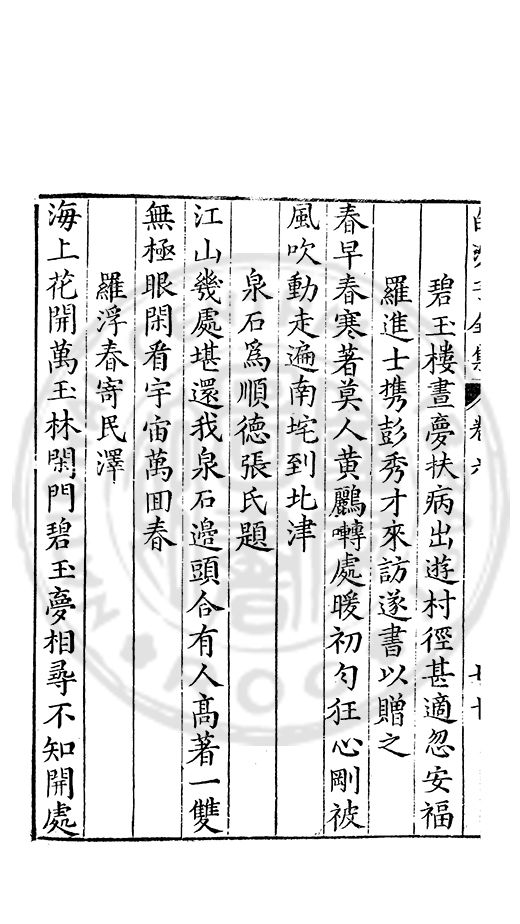 白沙子全集 卷六 七十
碧玉樓晝夢扶病出遊村徑甚適忽安福
羅進士攜彭秀才來訪遂書以贈之
春早春寒著莫人黃鸝囀處暖初勻狂心剛被
風吹動走遍南垞到北津
泉石爲順德張氏題
江山幾處堪還我泉石邊頭合有人高著一雙
無極眼閑看宇宙萬回春
羅浮春寄民澤
海上花開萬玉林閑門碧玉夢相尋不知開處